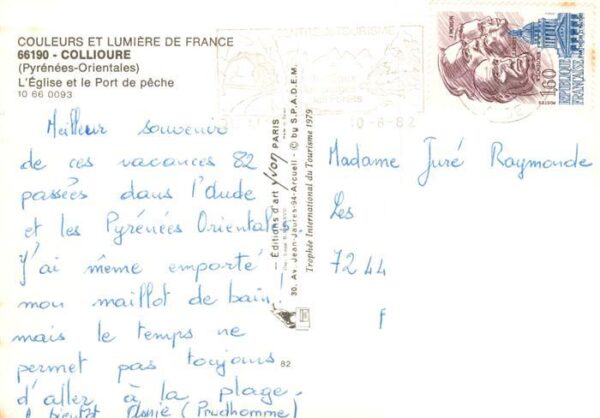 COULEURS ET LUMIÈRE DE FRANCE
66190 - COLLIOURE
(Pyrénées-Orientales)
L'Église et le Port de pêche
10 66 0093
Meilleur souvenir
de ces vacances 82
passées dans l'Aude
et les Pyrénées Orientales
J'ai même emporté
mon maillot de bain
mais le temps ne
permet pas toujours
d'aller à la plage.
A bientôt Annie (Prudhomme)
82
— Éditions d'art yvon PARIS
30. Av. Jean-Jaurès-94-Arcueil - © by S.P.A.D.E.M.
Trophée International du Tourisme 1979
TOURISME
10-8-82
1,60
REPUBLIQUE
FRANÇAISE
POSTES
Madame Juré Raymonde
Les
7244
F